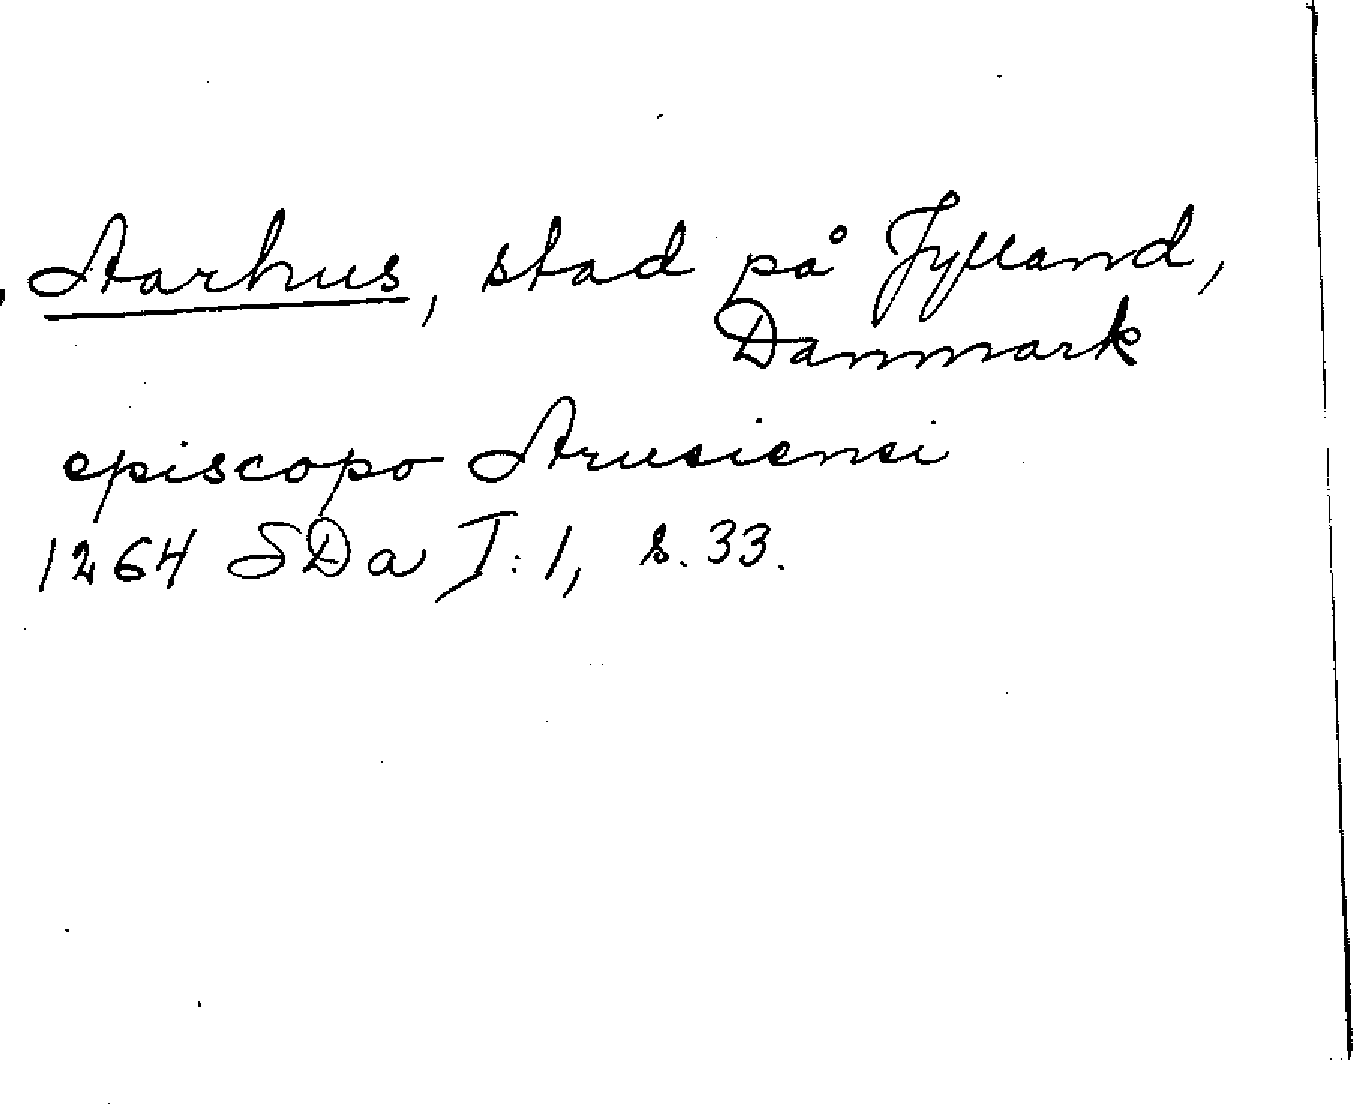 Aarhus, stad på Jylland,
Danmark
episcopo Arusiensi
1264 SDa I:1, s. 33.